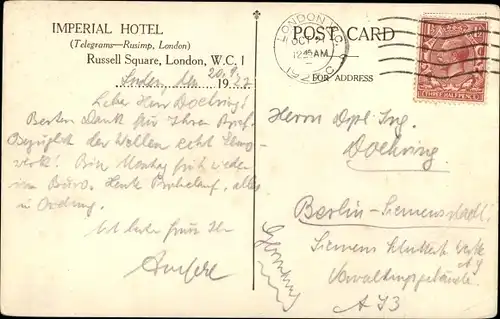 IMPERIAL HOTEL
(Telegrams—Rusimp, London)
Russell Square, London, W.C. 1
London, den 20. 19
Lieber Herr Doehring!
Besten Dank für Ihren Brief.
Bezüglich der Wellen echt
werk! Bin Montag früh wieder
im Büro. Heute Probelauf, alles
in Ordnung.
Mit Gruss Ihr
POST CARD
FOR ADDRESS
LONDON W.C.
OCT 21
12 45 AM
THREE HALFPENCE
Herrn Dipl. Ing.
Doehring
Berlin-Siemensstadt
Siemens Schuckert Werke
A G
Verwaltungsgebäude
Germany